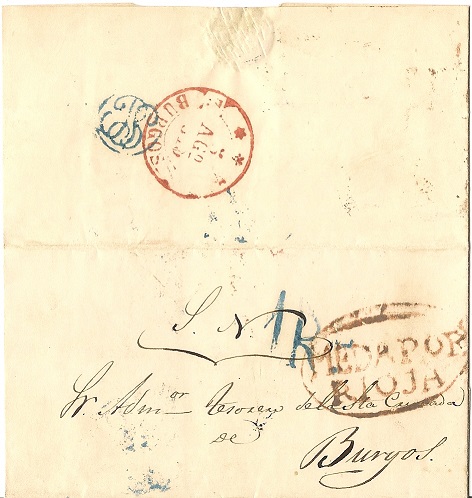 BURGOS
AGO
S. N.
1R
MEDAPOR
RIOJA
Sr. Admor. Tesorero de la Sta. Cruzada
de
Burgos.